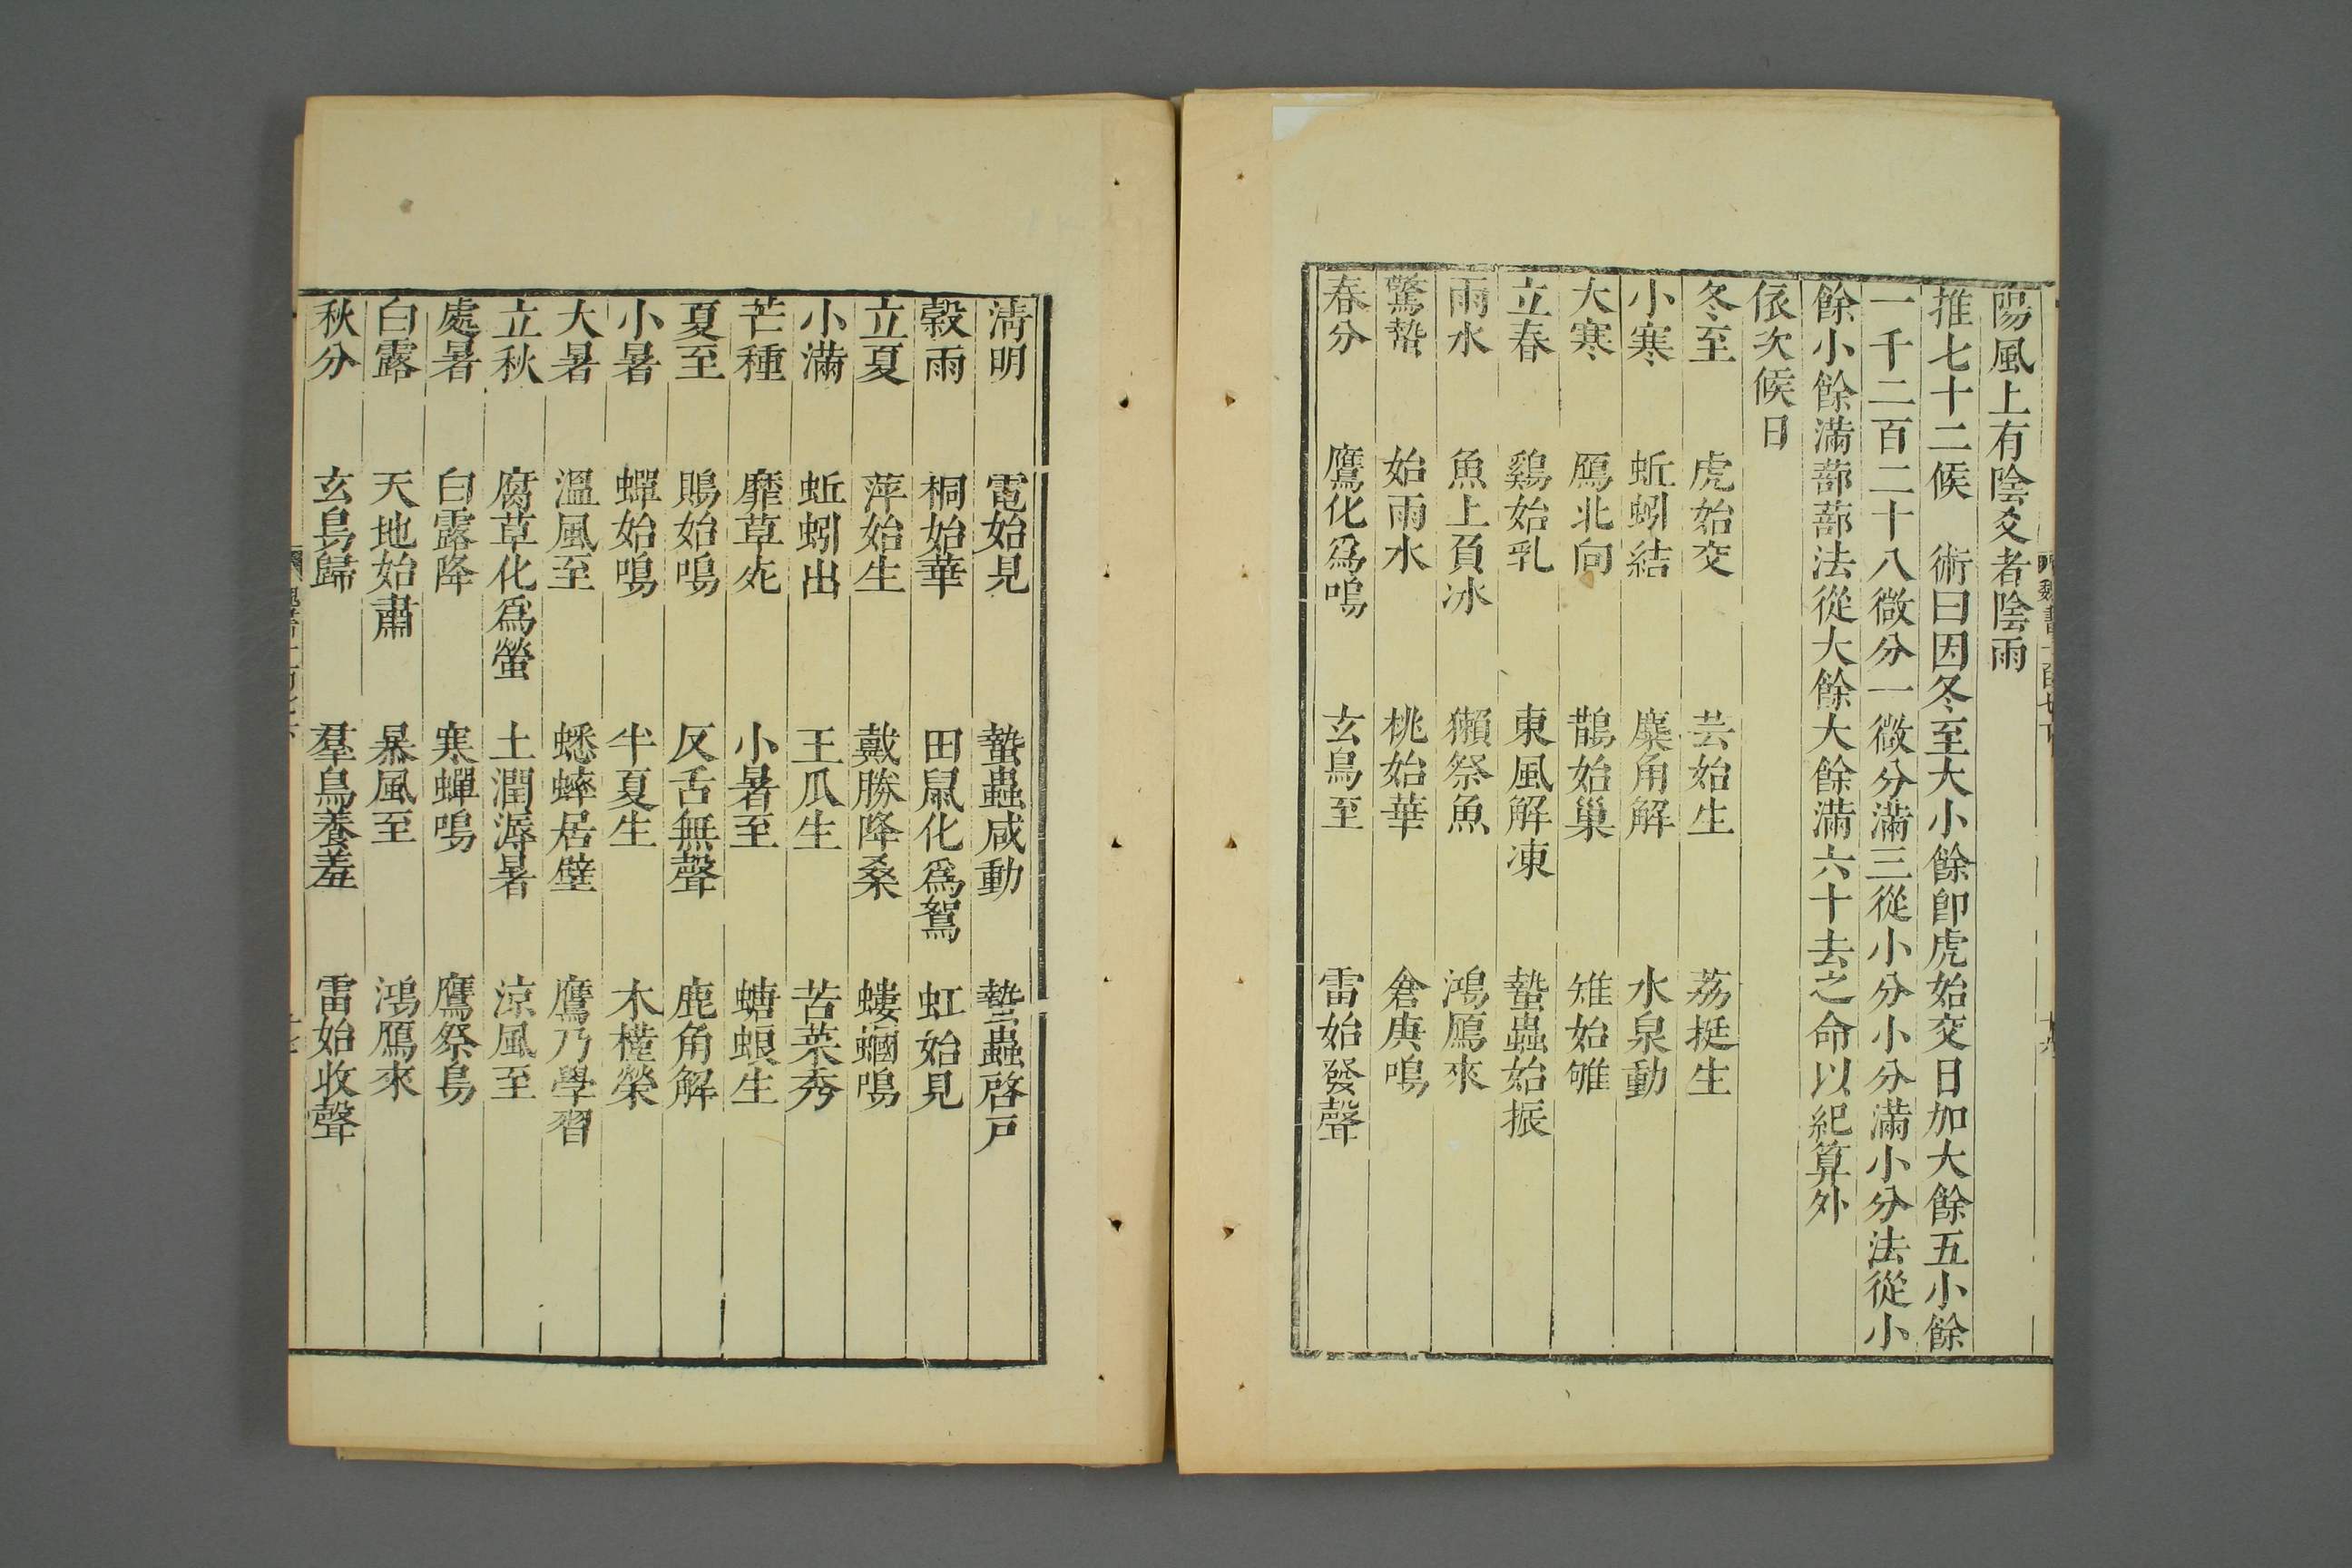 陽風上有陰爻者陰雨
推七十二候　術曰因冬至大小餘即虎始交日加大餘五小餘
一千二百二十八微分一微分滿三從小分小分滿小分法從小
餘小餘滿蔀蔀法從大餘大餘滿六十去之命以紀算外
依次候日
冬至　虎始交　芸始生　荔挺生
小寒　蚯蚓結　麋角解　水泉動
大寒　鴈北向　鵲始巢　雉始雊
立春　鷄始乳　東風解凍　蟄蟲始振
雨水　魚上負冰　獺祭魚　鴻鴈來
驚蟄　始雨水　桃始華　倉庚鳴
春分　鷹化爲鳩　玄鳥至　雷始發聲
清明　電始見　蟄蟲咸動　蟄蟲啓戸
穀雨　桐始華　田鼠化爲鴽　虹始見
立夏　萍始生　戴勝降桑　螻蟈鳴
小滿　蚯蚓出　王瓜生　苦菜秀
芒種　靡草死　小暑至　螗蜋生
夏至　鵙始鳴　反舌無聲　鹿角解
小暑　蟬始鳴　半夏生　木槿榮
大暑　溫風至　蟋蟀居壁　鷹乃學習
立秋　腐草化爲螢　土潤溽暑　涼風至
處暑　白露降　寒蟬鳴　鷹祭鳥
白露　天地始肅　暴風至　鴻鴈來
秋分　玄鳥歸　羣鳥養羞　雷始收聲